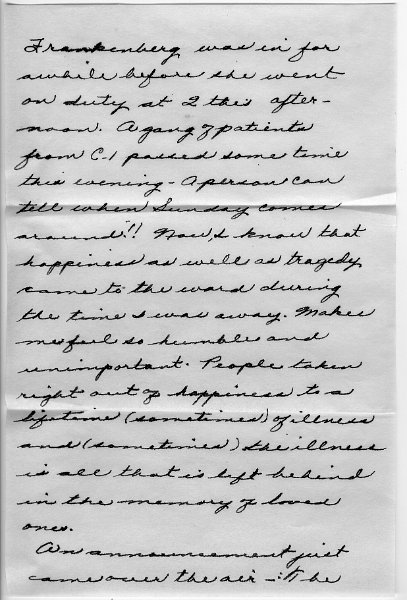 Frankenberg was in for
awhile before she went
on duty at 2 this after-
noon. A gang of patients
from C-1 passed some time
this evening - A person can
tell when Sunday comes
around!! Now, I know that
happiness as well as tragedy
came to the ward during
the time I was away. Makes
me feel so humble and
unimportant. People taken
right out of happiness to a
lifetime (sometimes) of illness
and (sometimes) the illness
is all that is left behind
in the memory of loved
ones.
An announcement just
came over the air - The